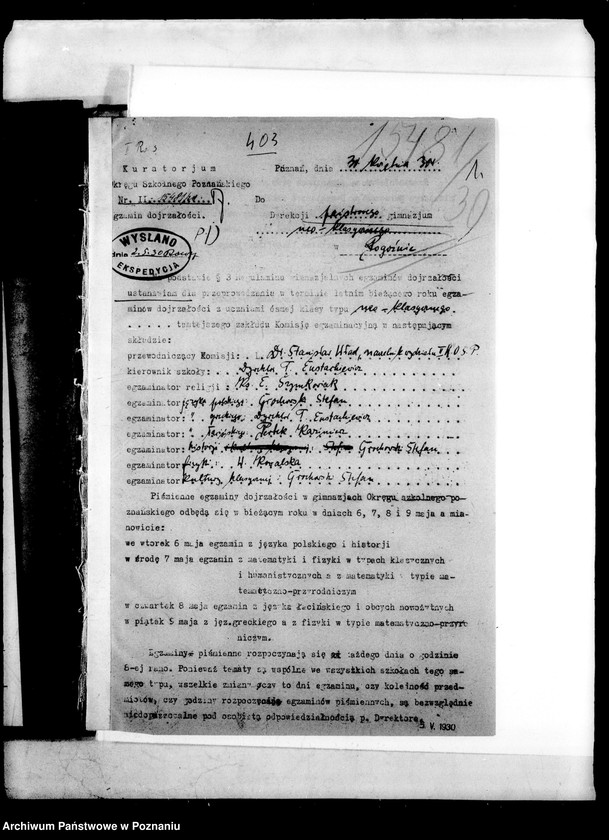 403
15481/30
K u r a t o r j u m
Okręgu Szkolnego Poznańskiego
Nr. II.
egzamin dojrzałości.
Poznań, dnia 30 kwietnia 30r.
Do
Derekcji państwowego gimnazjum
neo-klasycznego
w Rogoźnie
WYSŁANO
dnia 2.5.30
EKSPEDYCJA
podstawie § 3 egzaminów dojrzałości
ustanawiam dla przeprowadzenia w terminie letnim bieżącego roku egza-
minów dojrzałości z uczniami danej klasy typu neo-klasycznego.
tamtejszego zakładu Komisję egzaminacyjną w następującym
składzie:
przewodniczący Komisji: Dr. Stanisław K.O.S.P.
kierownik szkoły: Dyrektor T. Eustachiewicz
egzaminator religii: Ks. E. Szymkowiak
egzaminator języka polskiego: Grochowski Stefan
egzaminator: " greckiego: Dyrektor T. Eustachiewicz
egzaminator: " łacińskiego: Kazimierz
egzaminator: historji Grochowski Stefan
egzaminator fizyki: H.
egzaminator Kultury klasycznej: Grochowski Stefan
Piśmienne egzaminy dojrzałości w gimnazjach Okręgu szkolnego po-
znańskiego odbędą się w bieżącym roku w dniach 6, 7, 8 i 9 maja a mia-
nowicie:
we wtorek 6 maja egzamin z języka polskiego i historji
w środę 7 maja egzamin z matematyki i fizyki w typach klasycznych
i humanistycznych a z matematyki w typie ma-
tematyczno-przyrodniczym
w czwartek 8 maja egzamin z języka łacińskiego i obcych nowożytnych
w piątek 9 maja z jęz.greckiego a z fizyki w typie matematyczno-przyro
niczym.
Egzaminy piśmienne rozpoczynają się każdego dnia o godzinie
8-ej rano. Ponieważ tematy są wspólne we wszystkich szkołach tego sa-
mego typu, wszelkie zmiany czy to dni egzaminu, czy kolejność przed-
miotów, czy godziny rozpoczęcia egzaminów piśmiennych, są bezwzględnie
niedopuszczalne pod osobistą odpowiedzialnością p. Dyrektora.
5 V. 1930
Archiwum Państwowe w Poznaniu